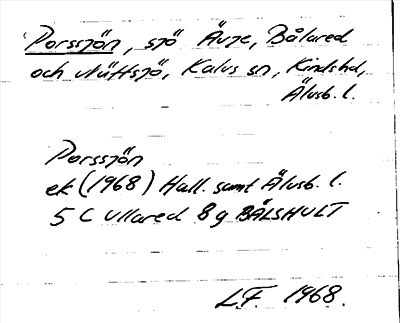 Porssjön, sjö Älvje, Bålared
och Nüttsjö, Kalvs sn, Kindshd,
Älvsb. l.
Porssjön
ek (1968) Hall. samt Älvsb. l.
5 C Ullared 8 g BÅLSHULT
L.F. 1968.